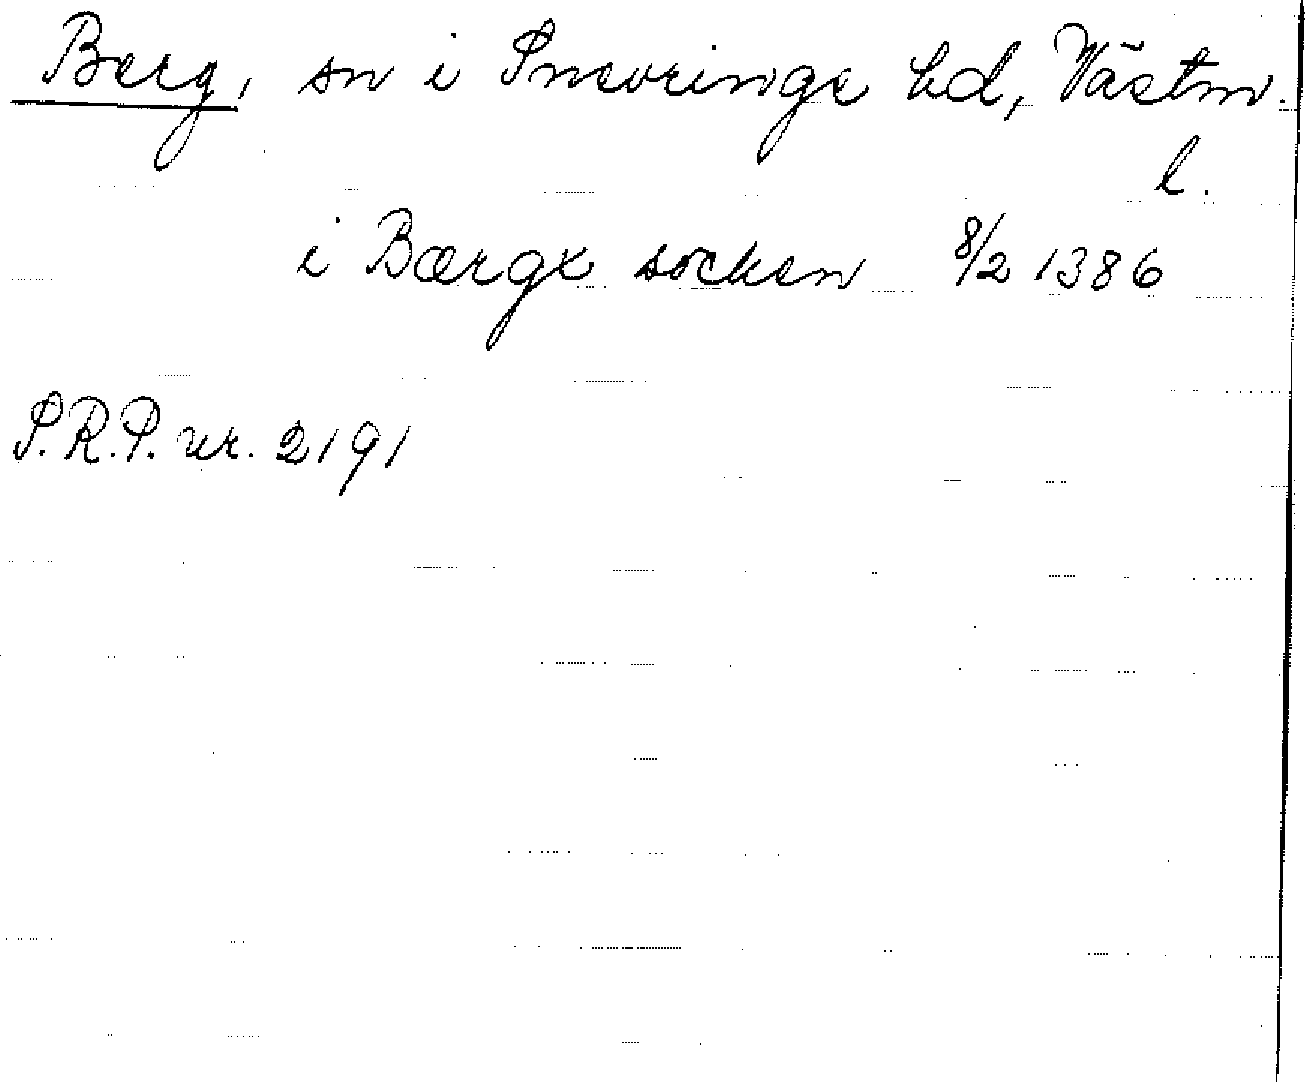 Berg, sn i Snevringe hd, Västm.
l.
i Bærgx socken 8/2 1386
S.R.P. nr. 2191